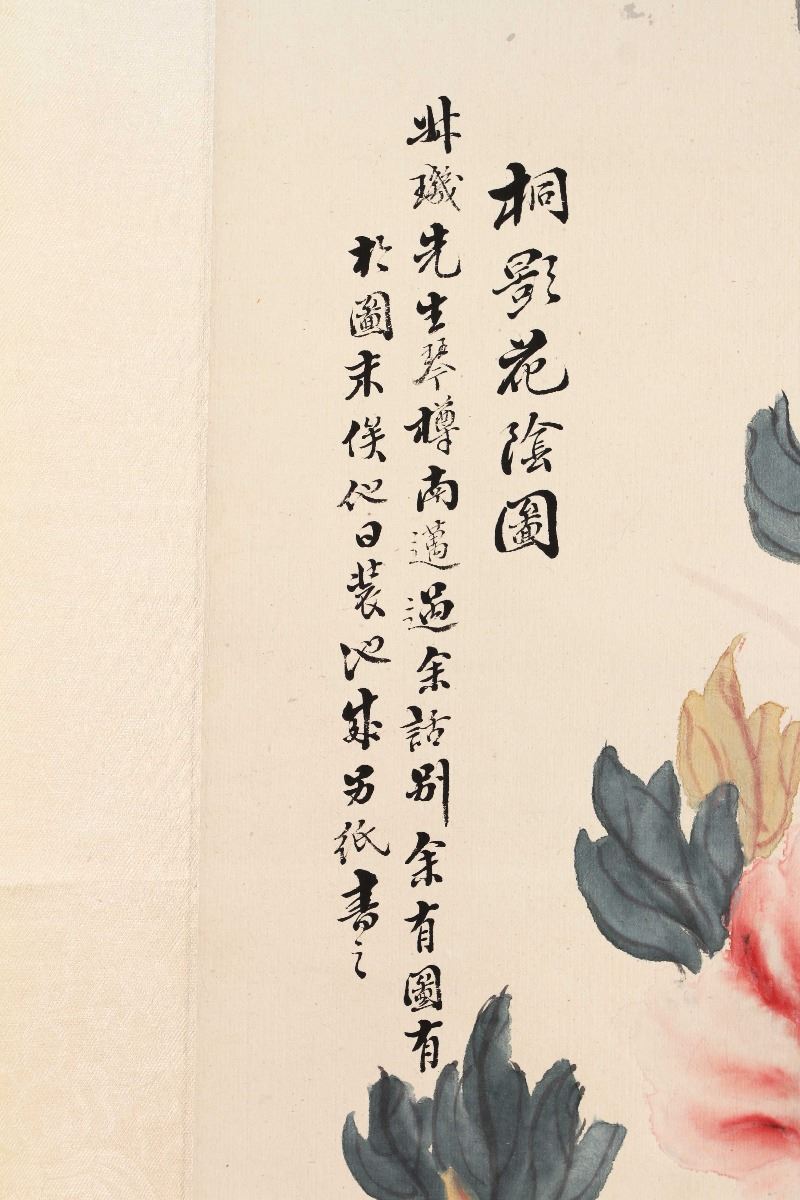 桐影花陰圖
璣先生琴樽南邁過余話別余有圖有
於圖末俟他日裝池成另紙書之